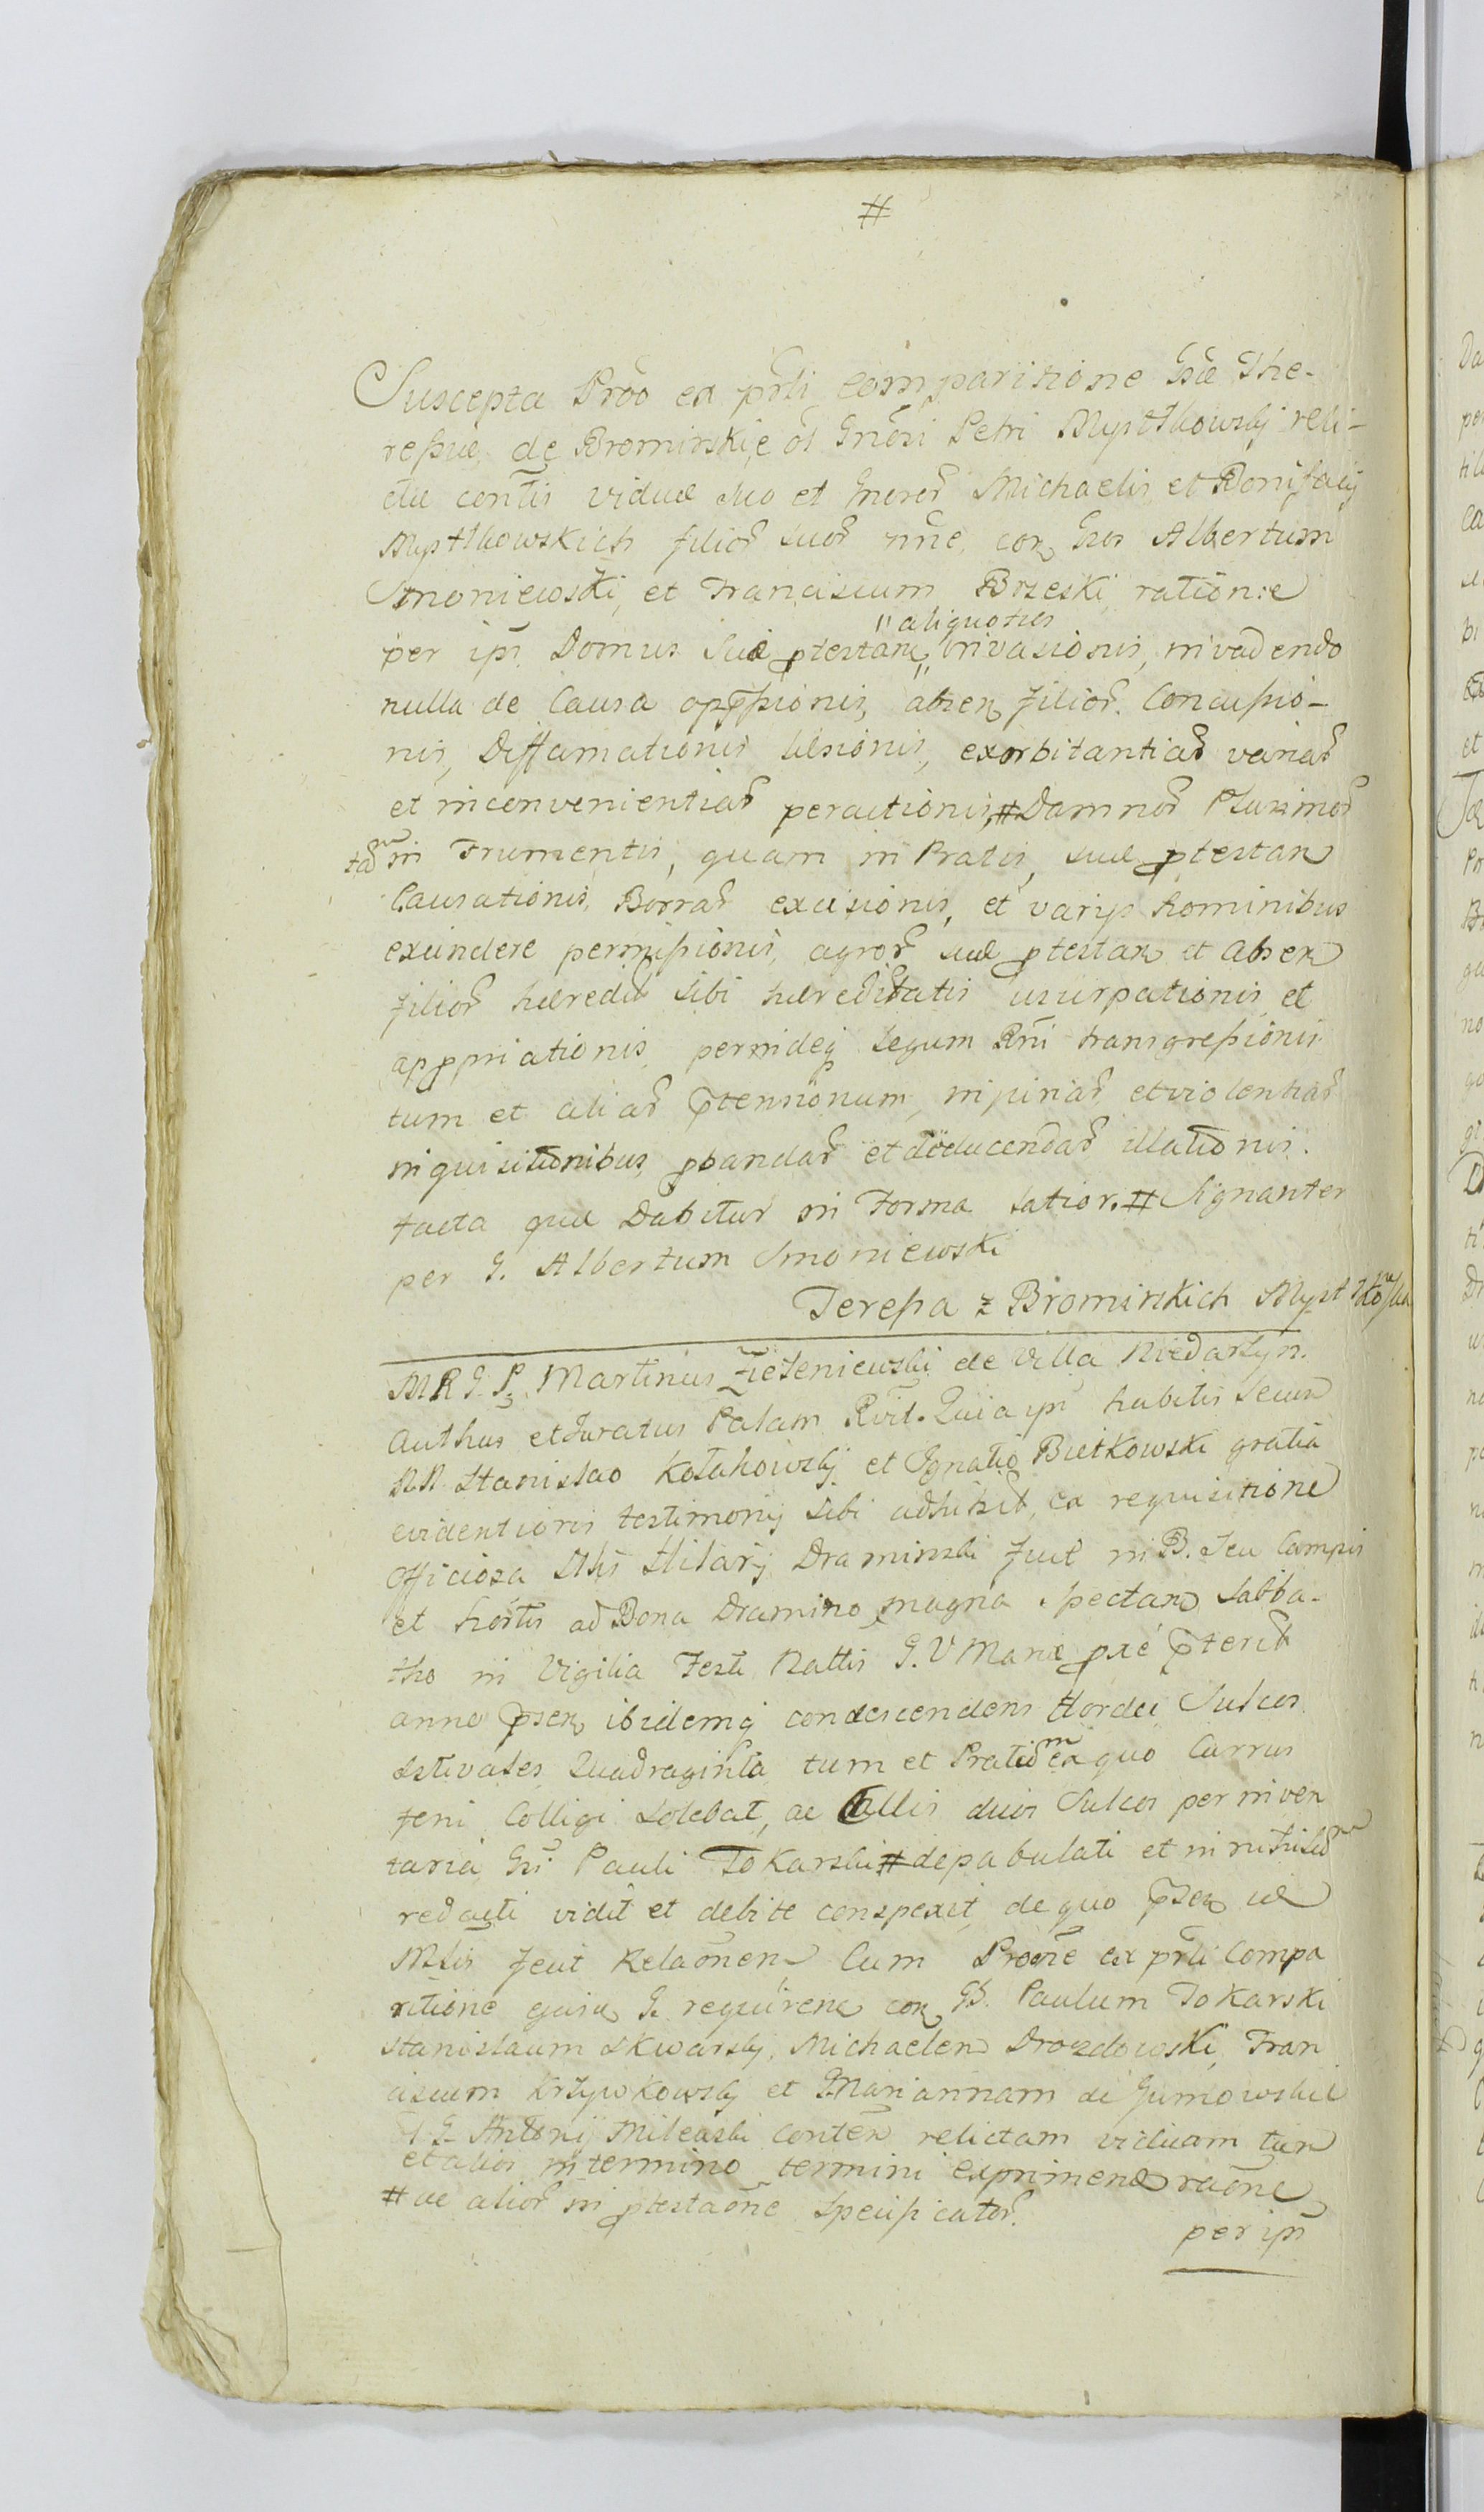 #
Suscepta Prõõ ex pr̃li comparitione Gsæ The-
ressiæ de Bromirskie õl Gnõsi Petri Mystkowskj reli-
ctæ contis viduæ suo et Gneror̃ Michaelis et Bonifacij
Mystkowskich filior̃ suor̃ nñe, cor̃ Gsos Albertum
Smoniewski, et Franciscum Brzeski, ration:e
aliquoties
per ipñ Domus suæ ptestanz invasionis, invadendo
nulla de Causa oppssionis, absenz filior̃. Concussio-
nis, Diffamationis læsionis, exorbitantiar̃ variar̃
et inconvenientiar̃ peractionis, # Damnor̃ Plurimor̃
tam in Frumentis, quam in Pratis, suæ ptestanz
Causationis, Borrar̃ excisionis, et varijs hominibus
exindere permissionis, agror̃ suæ ptestanz et absenz
filior̃ hæredit sibi hæreditatis usurpationis et
appriationis, perindeq Legum Rñi transgressionis
tum et aliar̃ ptensionum, injuriar̃ et violentiar̃
inquisitionibus pbandar̃ et deducendar̃ illationis.
facta quæ Dabitur in Forma Latior. # Signanter
per G. Albertum Smoniewski
Teressa z Bromirskich Mystkowska
M R G. P. Martinus Zieleniewski de Villa Niedarzyn.
Authus et Juratus Palam Rvit. Quia ipñ habitis secum
NN. Stanislao Kołakowskj et Ignatio Bietkowski gratia
evidentioris testimonij sibi adhibit, ex requisitione
Officiosa Mfis Hilarij Draminski fuit in B. seu Campis
et hortis ad Bona Dramino magna spectanz Sabba-
tho in Vigilia Festi Nattis G. V Mariæ pxe pterit
anno psenz ibidemq condescendens Hordei Sulcos
Estivales Quadraginta tum et Pratum ex quo Currus
feni Colligi solebat, ac Allii duos Sulcos per inven
taria Gsi Pauli Tokarski # depabulati et in nihilum
redacti vidit et debite conspexit, de quo psenz uæ
Mltis fecit Relaõnem Cum Proõne ex pr̃li Compa
ritione ejusd G. requirenz cor̃ GD. Paulum Tokarski
Stanislaum Skwarskj, Michaelem Drozdowski, Fran
ciscum Krzywkowskj et G. Mariannam de Gumowskie
õl G. Antonij Milewski conten relictam viduam tum
et alios in termino termini exprimend raõne
# ac alior̃ in ptestaõne specificator̃.
per ipñ